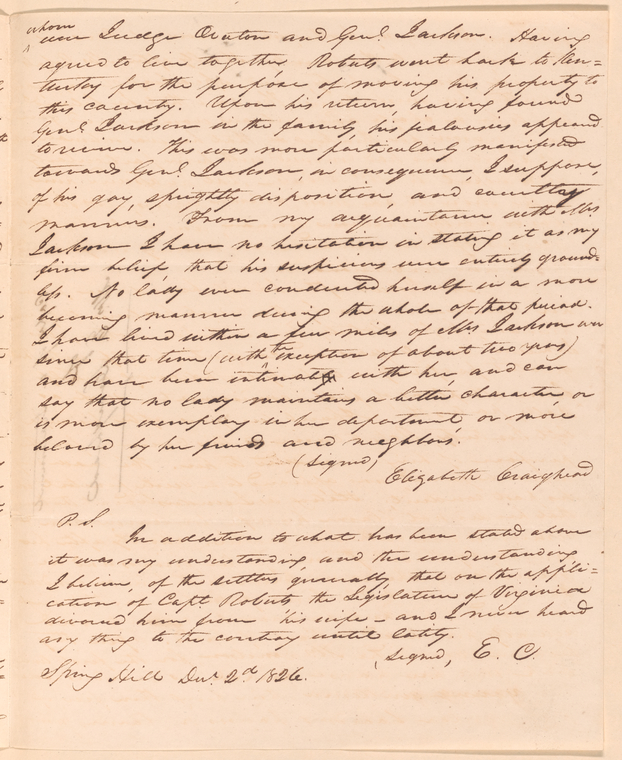 whom
were Judge Overton and Genl. Jackson. Having
agreed to live together Robards went back to Ken=
tucky for the purpose of moving his property to
this country. Upon his return, having found
Genl Jackson in the family, his jealousies appeared
to revive. This was more particularly manifested
towards Genl. Jackson, in consequence, I suppose,
of his gay, sprightly disposition, and courtly
manners. From my acquaintance with Mrs
Jackson I have no hesitation in stating it as my
firm belief, that his suspicions were entirely ground-
less. No lady ever conducted herself in a more
becoming manner during the whole of that period.
I have lived within a few miles of Mrs. Jackson ever
since that time (with the exception of about two years)
and have been intimate with her, and can
say that no lady maintains a better character, or
is more exemplary in her deportment, or more
beloved by her friends and neighbors.
(Signed)
Elizabeth Craighead
P.S.
In addition to what has been stated above
it was my understanding, and the understanding
I believe, of the settlers generally, that on the appli=
cation of Capt Roberts the Legislature of Virginia
divorced him from his wife - and I never heard
any thing to the contrary until lately.
(Signed, E. C.
Spring Hill Decr. 2d. 1826.